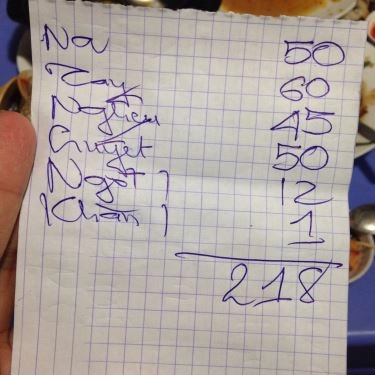 Ng 50
Ray 60
Nghêu 45
Huyết 50
Ngọt 1 12
Khăn 1 1
218